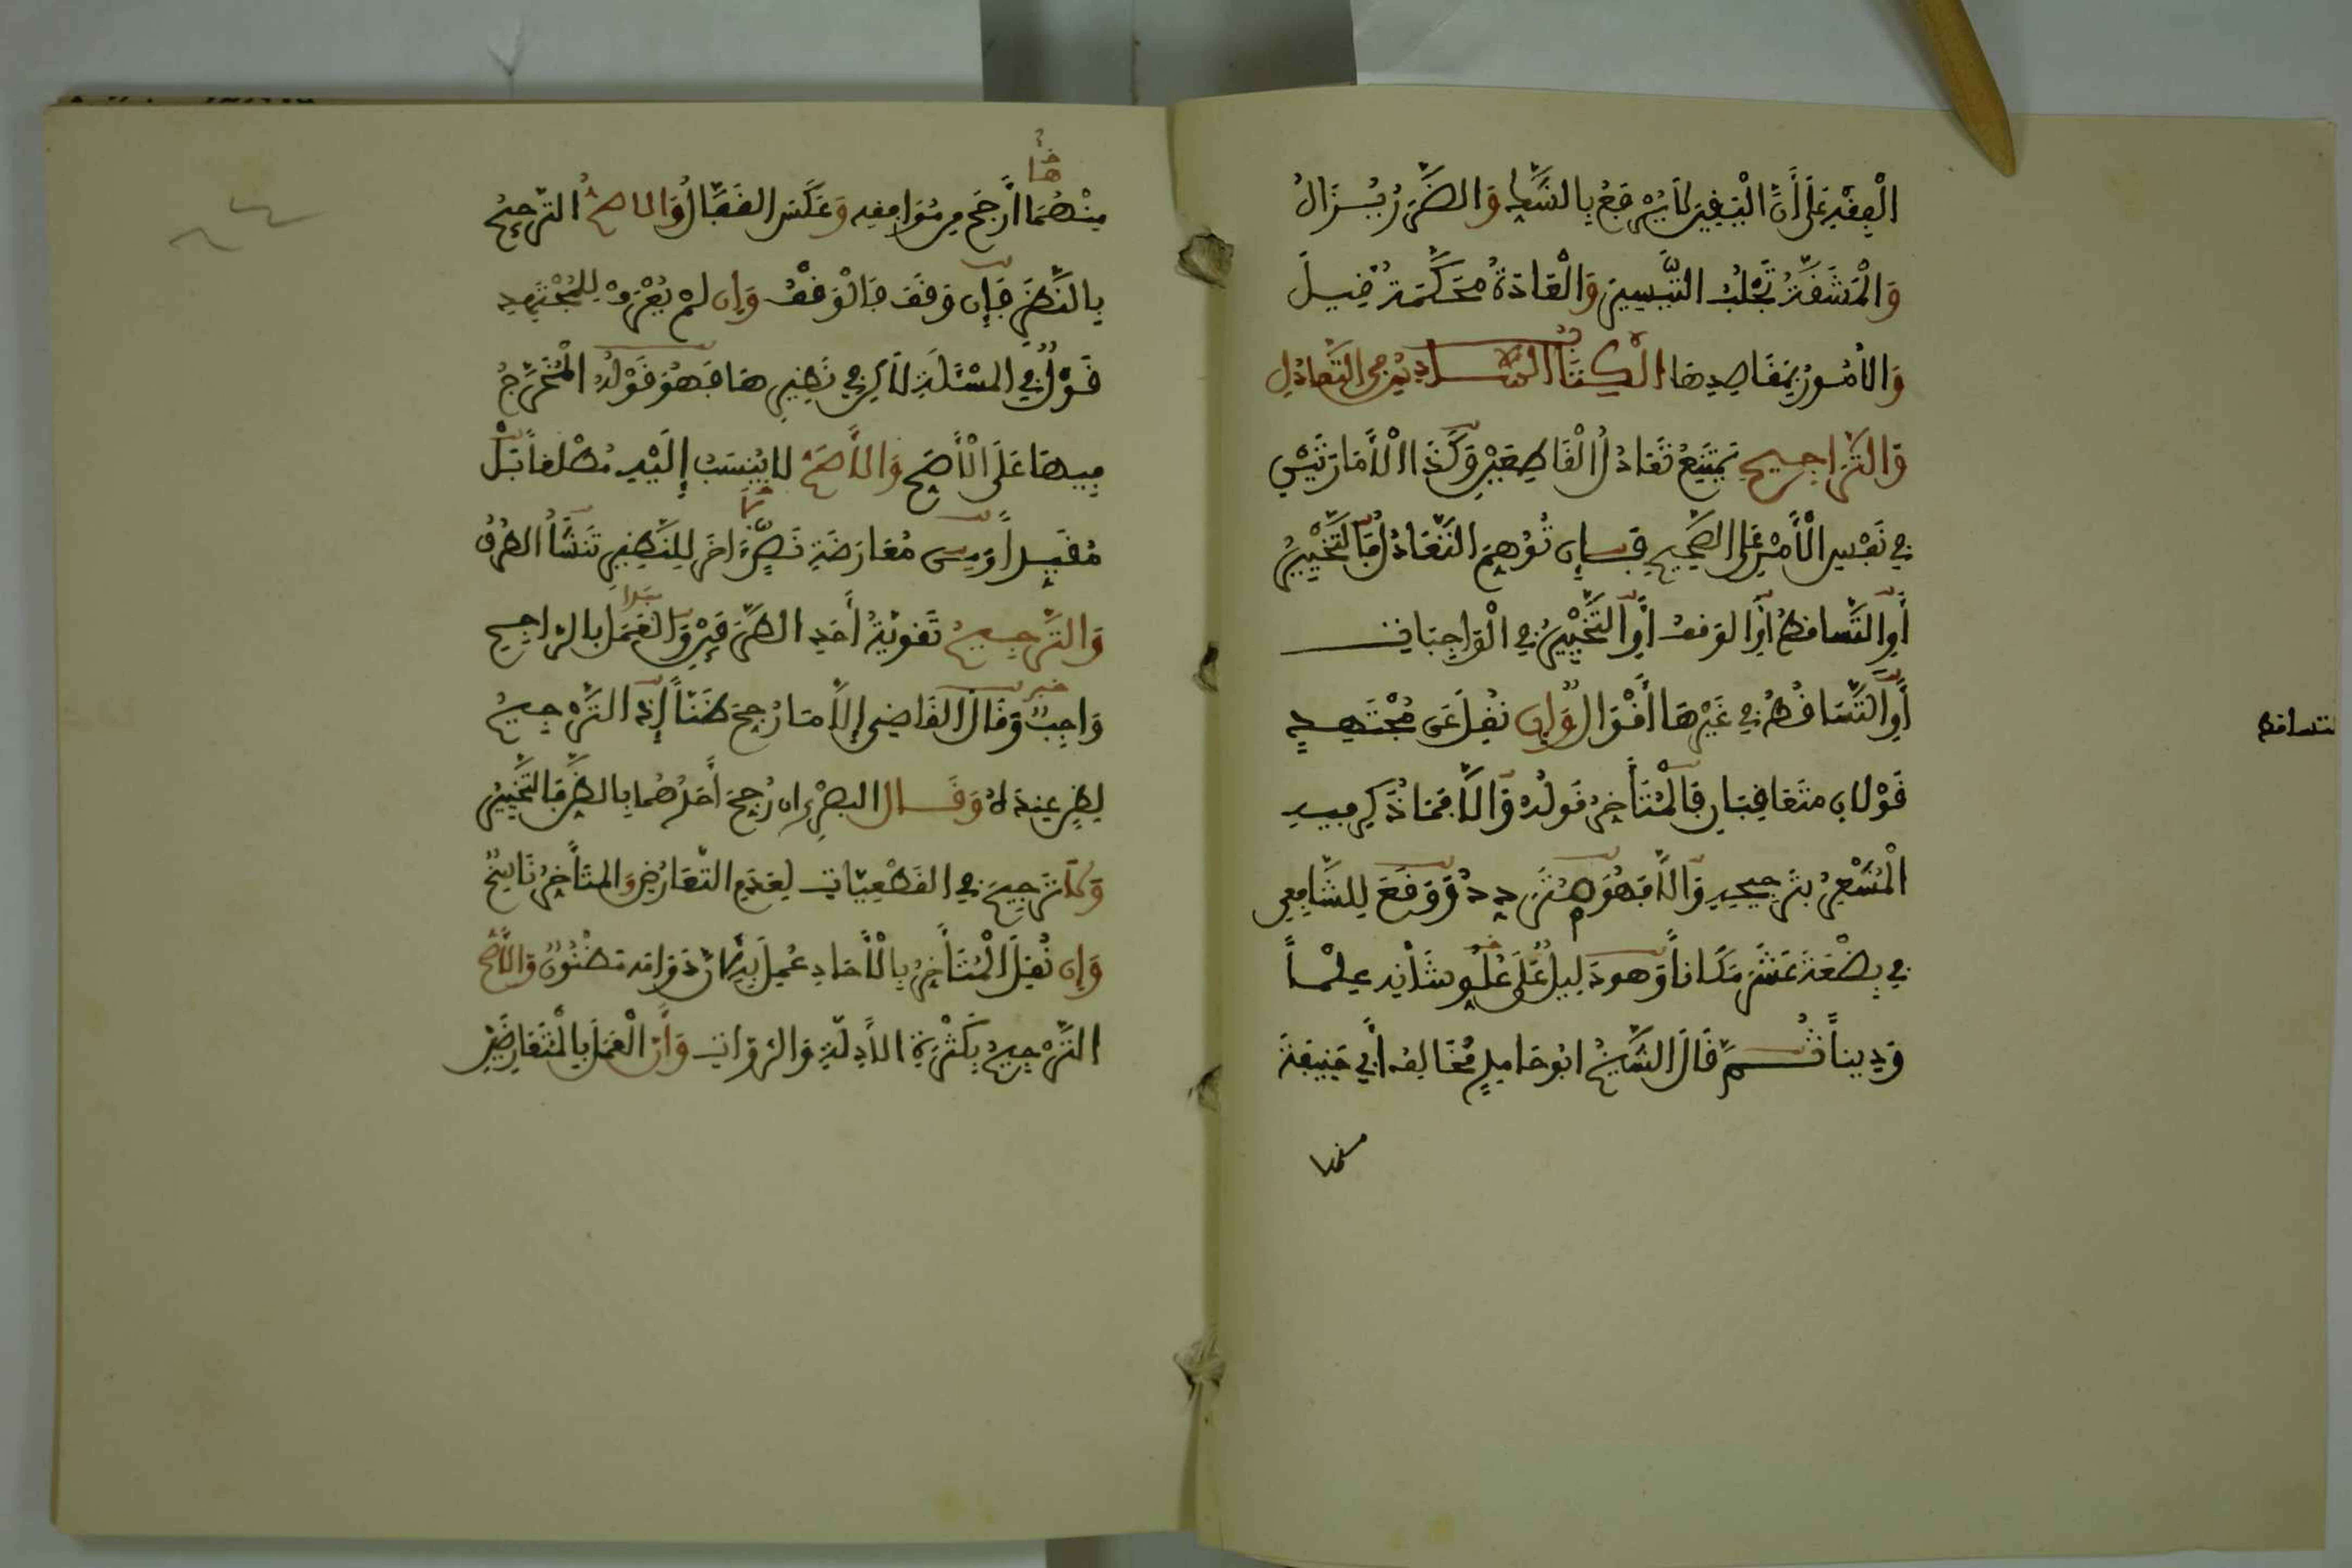 الْفِقْهِ عَلَى أَنَّ الْيَقِينَ لَا يُرْفَعُ بِالشَّكِّ وَالضَّرَرُ يُزَالُ
وَالْمَشَقَّةُ تَجْلُبُ التَّيْسِيرَ وَالْعَادَةُ مُحَكَّمَةٌ قِيلَ
وَالْأُمُورُ بِمَقَاصِدِهَا الْكِتَابُ السَّادِسُ فِي التَّعَادُلِ
وَالتَّرَاجِيحِ يَمْتَنِعُ تَعَادُلُ الْقَاطِعَيْنِ وَكَذَا الْأَمَارَتَيْنِ
فِي نَفْسِ الْأَمْرِ عَلَى الصَّحِيحِ فَإِن تُوُهِّمَ التَّعَادُلُ فَالتَّخْيِيرُ
أَوِ التَّسَاقُطُ أَوِ الْوَقْفُ أَوِ التَّخْيِيرُ فِي الْوَاجِبَاتِ
أَوِ التَّسَاقُطُ فِي غَيْرِهَا أَقْوَالٌ وَإِن نُقِلَ عَن مُجْتَهِدٍ
قَوْلَانِ مُتَعَاقِبَانِ فَالْمُتَأَخِّرُ قَوْلُهُ وَإِلَّا فَمَا ذُكِرَ فِيهِ
الْمُشْعِرُ بِتَرْجِيحِهِ وَإِلَّا فَهُوَ مُتَرَدِّدٌ وَوَقَعَ لِلشَّافِعِي
فِي بِضْعَةَ عَشَرَ مَكَاناً وَهُوَ دَلِيلٌ عَلَى عُلُوِّ شَأْنِهِ عِلْماً
وَدِيناً ثُمَّ قَالَ الشَّيْخُ أَبُو حَامِدٍ مُخَالِفُ أَبِي حَنِيفَةَ
منهما
التساقط
مِنْهُمَا أَرْجَحُ مِن مُوَافِقِهِ وَعَكَسَ الْقَفَّالُ وَالْأَصَحُّ التَّرْجِيحُ
بِالنَّظَرِ فَإِن وَقَفَ فَالْوَقْفُ وَإِن لَمْ يُعْرَفْ لِلْمُجْتَهِدِ
قَوْلٌ فِي الْمَسْئَلَةِ لَكِن فِي نَظِيرِهَا فَهُوَ قَوْلُهُ الْمُخَرَّجُ
فِيهَا عَلَى الْأَصَحِّ وَالْأَصَحُّ لَا يُنْسَبُ إِلَيْهِ مُطْلَقاً بَلْ
مُقَيَّداً وَمِن مُعَارَضَةِ نَصٍّ آخَرَ لِلنَّظِيرِ تَنْشَأُ الطُّرُقُ
وَالتَّرْجِيحُ تَقْوِيَةُ أَحَدِ الطَّرِيقَيْنِ وَالْعَمَلُ بِالرَّاجِحِ
وَاجِبٌ وَقَالَ الْقَاضِي إِلَّا مَا رُجِّحَ ظَنّاً إِذْ لَا تَرْجِيحَ
بِظَنٍّ عِنْدَهُ وَقَالَ الْبَصْرِي إِن رُجِّحَ أَحَدُهُمَا بِالظَّنِّ فَالتَّخْيِيرُ
وَلَا تَرْجِيحَ فِي الْقَطْعِيَّاتِ لِعَدَمِ التَّعَارُضِ وَالْمُتَأَخِّرُ نَاسِخٌ
وَإِن نُقِلَ الْمُتَأَخِّرُ بِالْآحَادِ عُمِلَ بِهِ لِأَنَّ دَوَامَهُ مَظْنُونٌ وَالْأَصَحُّ
التَّرْجِيحُ بِكَثْرَةِ الْأَدِلَّةِ وَالرُّوَاةِ وَأَنَّ الْعَمَلَ بِالْمُتَعَارِضَيْنِ